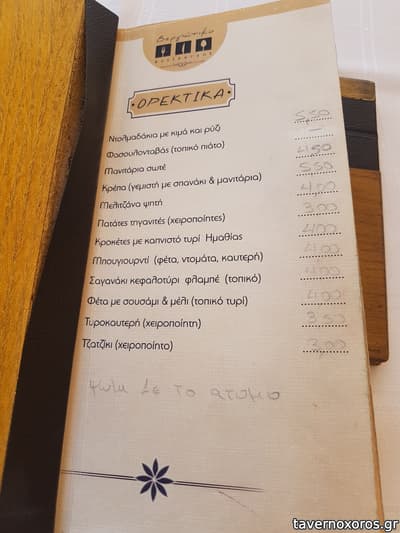 Βεργιώτικο
ΟΡΕΚΤΙΚΑ
Ντολμαδάκια με κιμά και ρύζι 5,50
Φασουλονταβάς (τοπικό πιάτο) —
Μανιτάρια σωτέ 4,50
Κρέπα (γεμιστή με σπανάκι & μανιτάρια) 5,50
Μελιτζάνα ψητή 4,00
Πατάτες τηγανιτές (χειροποίητες) 3,00
Κροκέτες με καπνιστό τυρί Ημαθίας 4,00
Μπουγιουρντί (φέτα, ντομάτα, καυτερή) 4,00
Σαγανάκι κεφαλοτύρι φλαμπέ (τοπικό) 4,00
Φέτα με σουσάμι & μέλι (τοπικό τυρί) 4,00
Τυροκαυτερή (χειροποίητη) 3,50
Τζατζίκι (χειροποίητο) 3,00
ψωμι 1€ το ατομο
tavernoxoros.gr